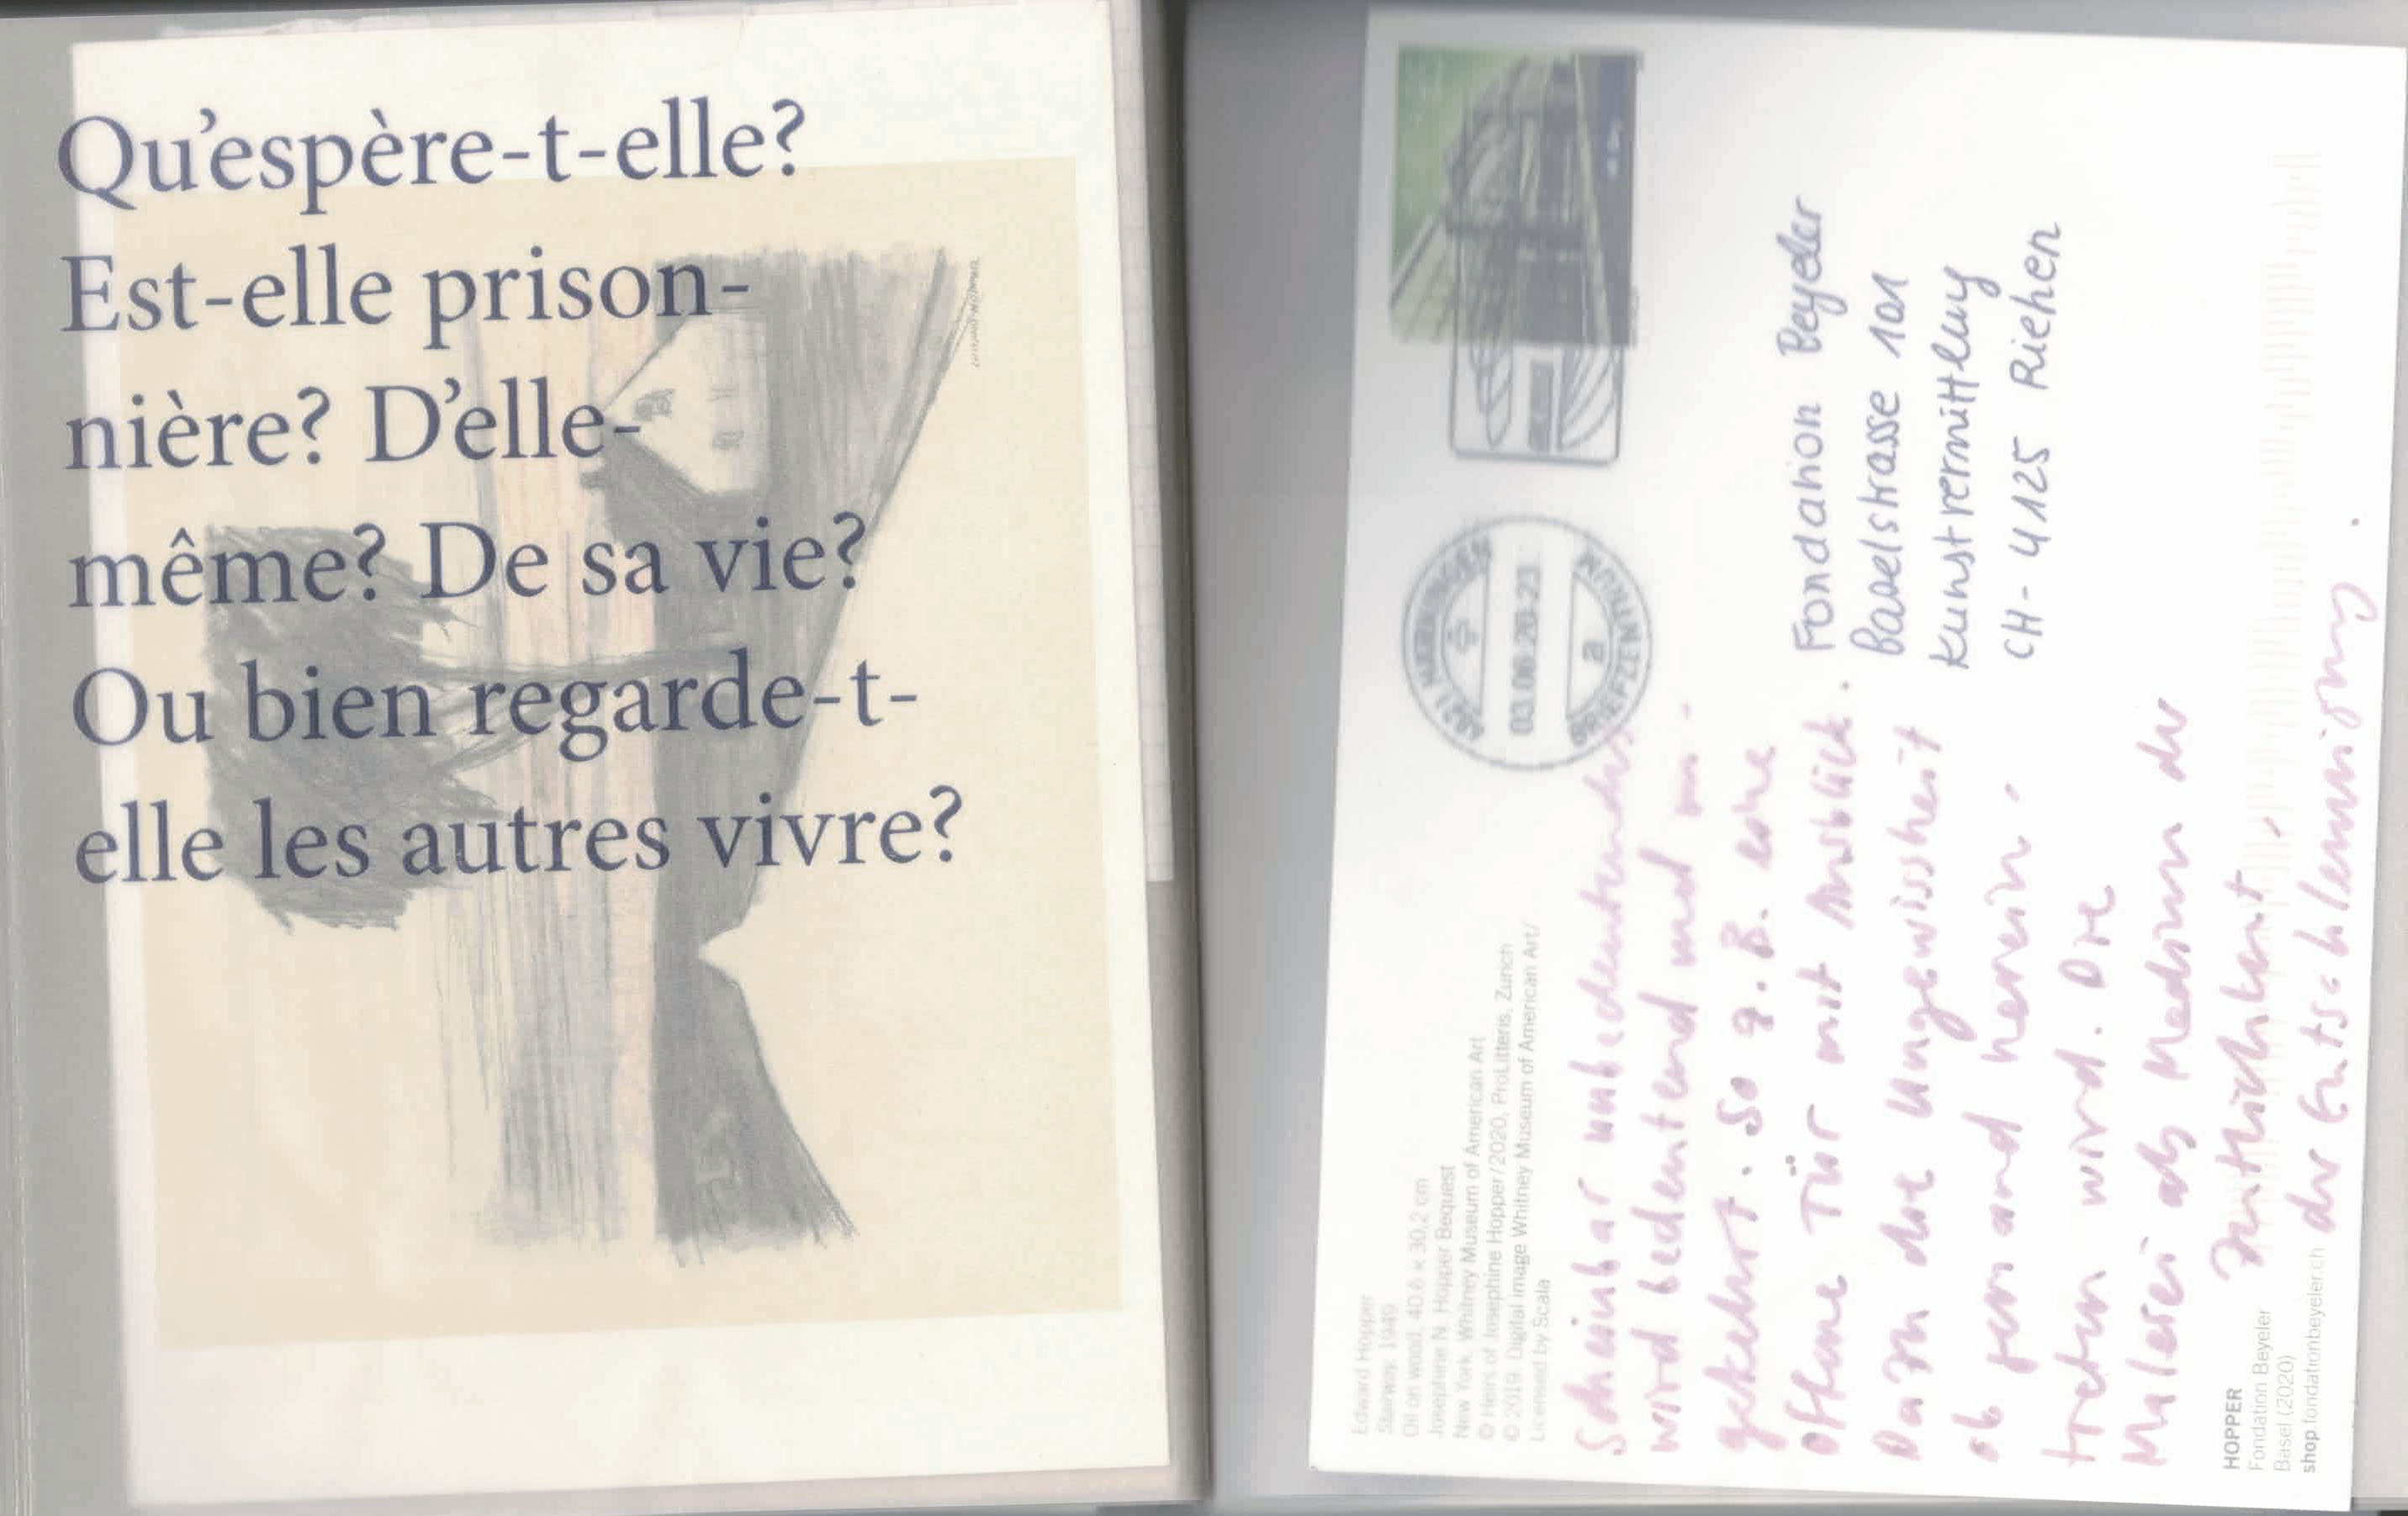 Qu'espère-t-elle?
Est-elle prison-
nière? D'elle-
même? De sa vie?
Ou bien regarde-t-
elle les autres vivre?
Edward Hopper
Stairway, 1949
Oil on wood, 40,6 x 30,2 cm
Josephine N. Hopper Bequest
New York, Whitney Museum of American Art
© Heirs of Josephine Hopper / 2020, ProLitteris, Zurich
© 2019. Digital image Whitney Museum of American Art/
Licensed by Scala
4621 HÄRKINGEN
03.06.20-23
BRIEFZENTRUM
a
Scheinbar unbedeutendes
wird bedeutend und um-
gekehrt. So z.B. eine
offene Tür mit Ausblick.
Dazu die Ungewissheit
ob jemand herein-
treten wird. Die
Malerei als Medium der
der Entschleunigung.
Fondation Beyeler
Baselstrasse 101
Kunstvermittlung
CH-4125 Riehen
HOPPER
Fondation Beyeler
Basel (2020)
shop.fondationbeyeler.ch